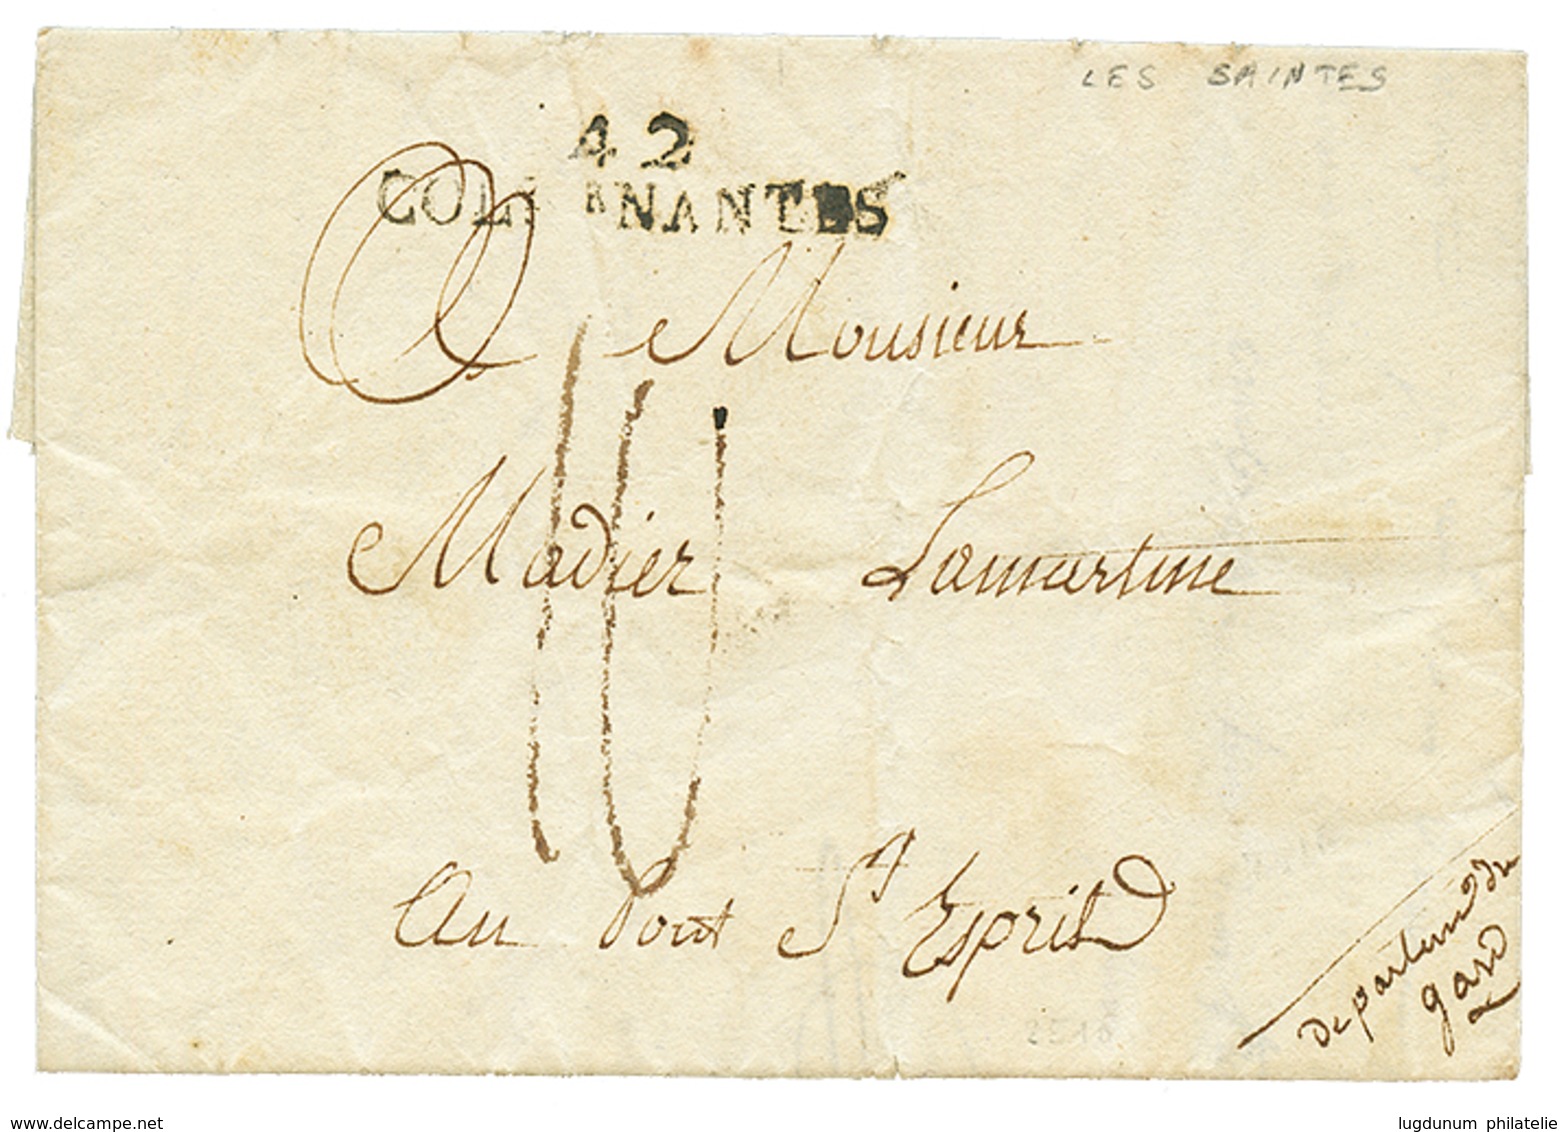 LES SAINTES
42
COL. R NANTES
A Monsieur
Madier Lamartine
Au Pont St Esprit
Departem. du
gard
2510
delcampe.net
lugdunum philatelie